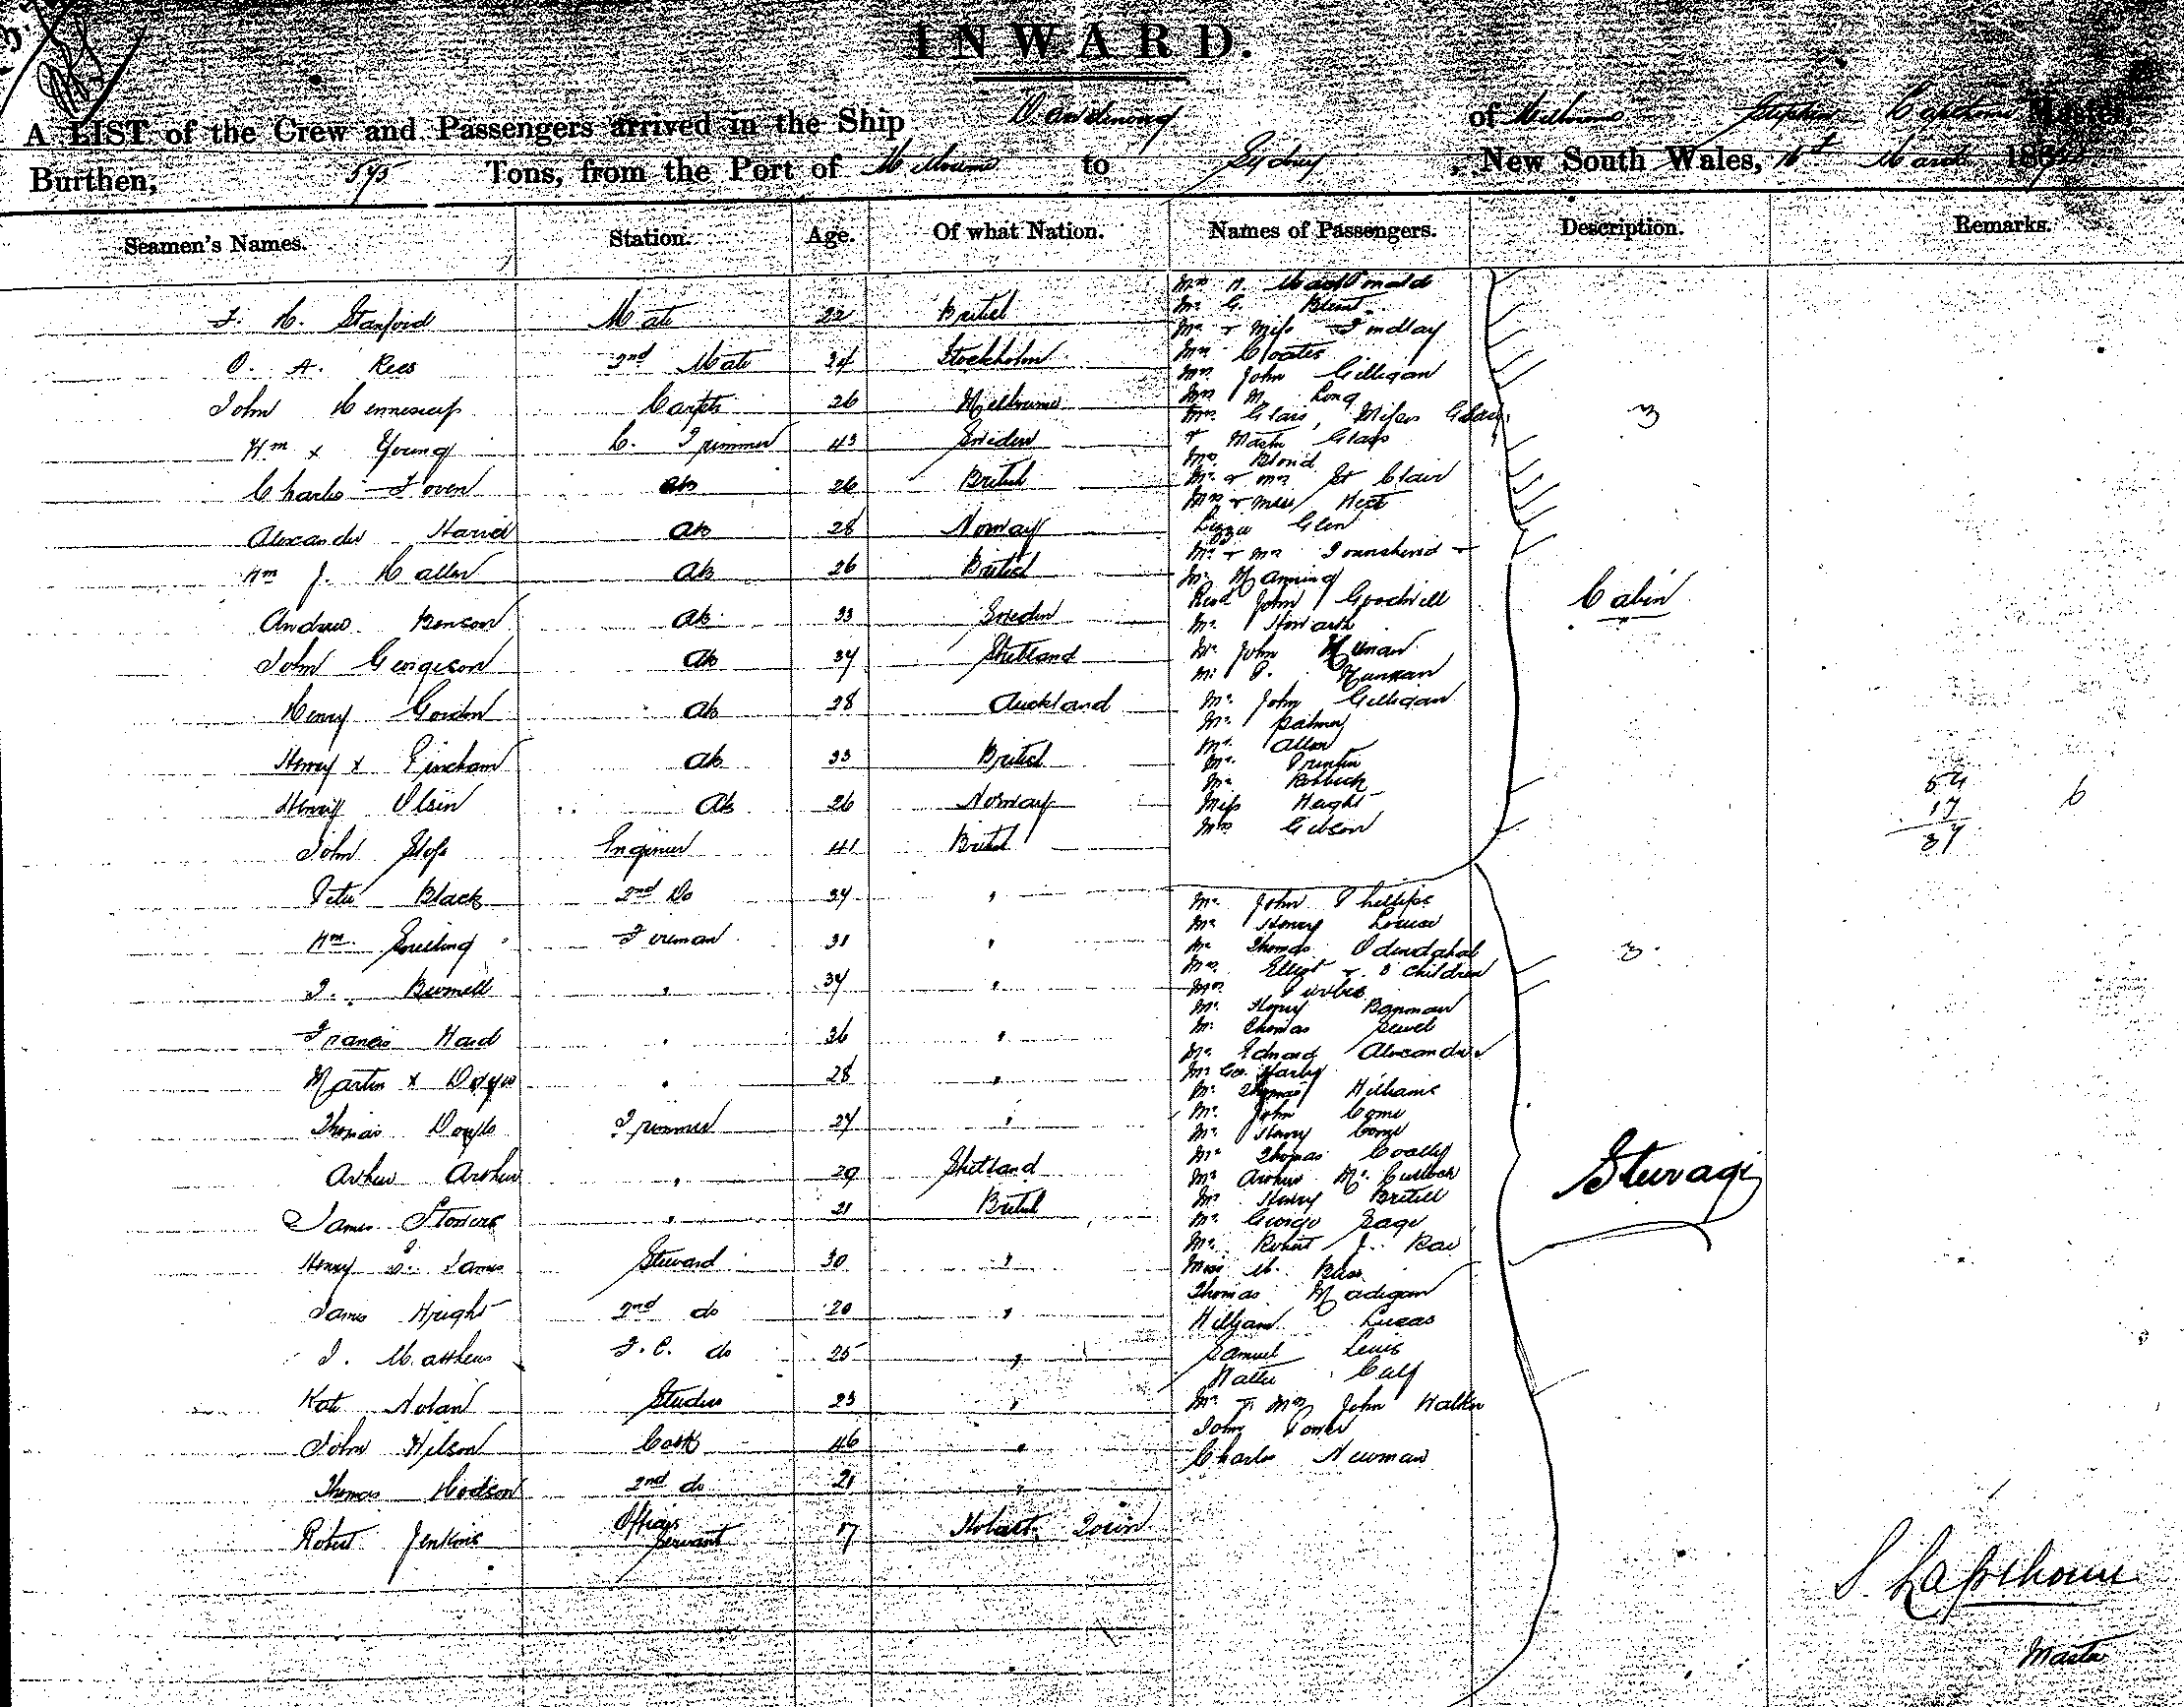 INWARD.
A LIST of the Crew and Passengers arrived in the Ship Dandenong of Melbourne Stephen Lapthorne Master,
Burthen, 595 Tons, from the Port of Melbourne to Sydney, New South Wales, 16th March 187
Seamen's Names. Station. Age. Of what Nation. Names of Passengers. Description. Remarks.
Mrs MacDonald
F. H. Stanford Mate 22 British Mr G. Blunt
Mr & Miss Findlay
O. A. Rees 2nd Mate 24 Stockholm Mrs Coates
Mrs John Gilligan
John Hennessey Carptr 26 Melbourne Mrs M. Long
Mrs Glass, Misses Glass 3
Wm x Young L. Trimmer 43 Sweden & Master Glass
Mrs Blond
Charles Foven AB 26 British Mr & Mrs St Clair
Mrs & Miss West
Alexander Harris AB 28 Norway Lizzie Glen
Mr & Mrs Townshend &
Wm J. Haller AB 26 British Mr Manning
Revd John Goodwill Cabin
Andrew Benson AB 33 Sweden Mr Howarth
John Georgeson AB 34 Shetland Mr John
Mr
Henry Gordon AB 28 Auckland Mr John Gilligan
Mr Palmer
Mr Allen
Henry x Fincham AB 33 British Mr
Mr
Henry Olsen AB 26 Norway Miss Haight 54 6
17
Mrs Gibson 37
John Sloss Engineer 41 British
Peter Black 2nd Do 34 " Mr John Phillips
Mr Henry
Wm Snelling Fireman 31 " Mr Thomas Odendahal 3
Mrs Elliot & 3 children
T. Burnell " 34 " Mrs
Mr Henry Banman
Francis Ward " 36 " Mr Thomas Sewel
Mr Edward Alexander
Martin x " 28 " Mr Geo. Harley
Mr Thomas Williams
Thomas Doyle Trimmer 24 " Mr John Come
Mr Henry Come
Mr Thomas
Arthur Arthur " 29 Shetland Mr Arthur McCulloch Steerage
Mr Henry
James Stowers " 21 British Mr George Page
Mr Robert J. Rae
Henry D. James Steward 30 " Miss M. Bass
Thomas Madigan
James Wright 2nd do 20 " William Lucas
T. Matthews F.C. do 25 " Samuel Lewis
Walter Calf
Kate Nolan Studss 23 " Mr & Mrs John Walker
John Power
John Wilson Cook 46 " Charles Newman
Thomas Hodson 2nd do 21 "
Robert Jenkins Officers Servant 17 Hobart Town
S. Lapthorne
Master